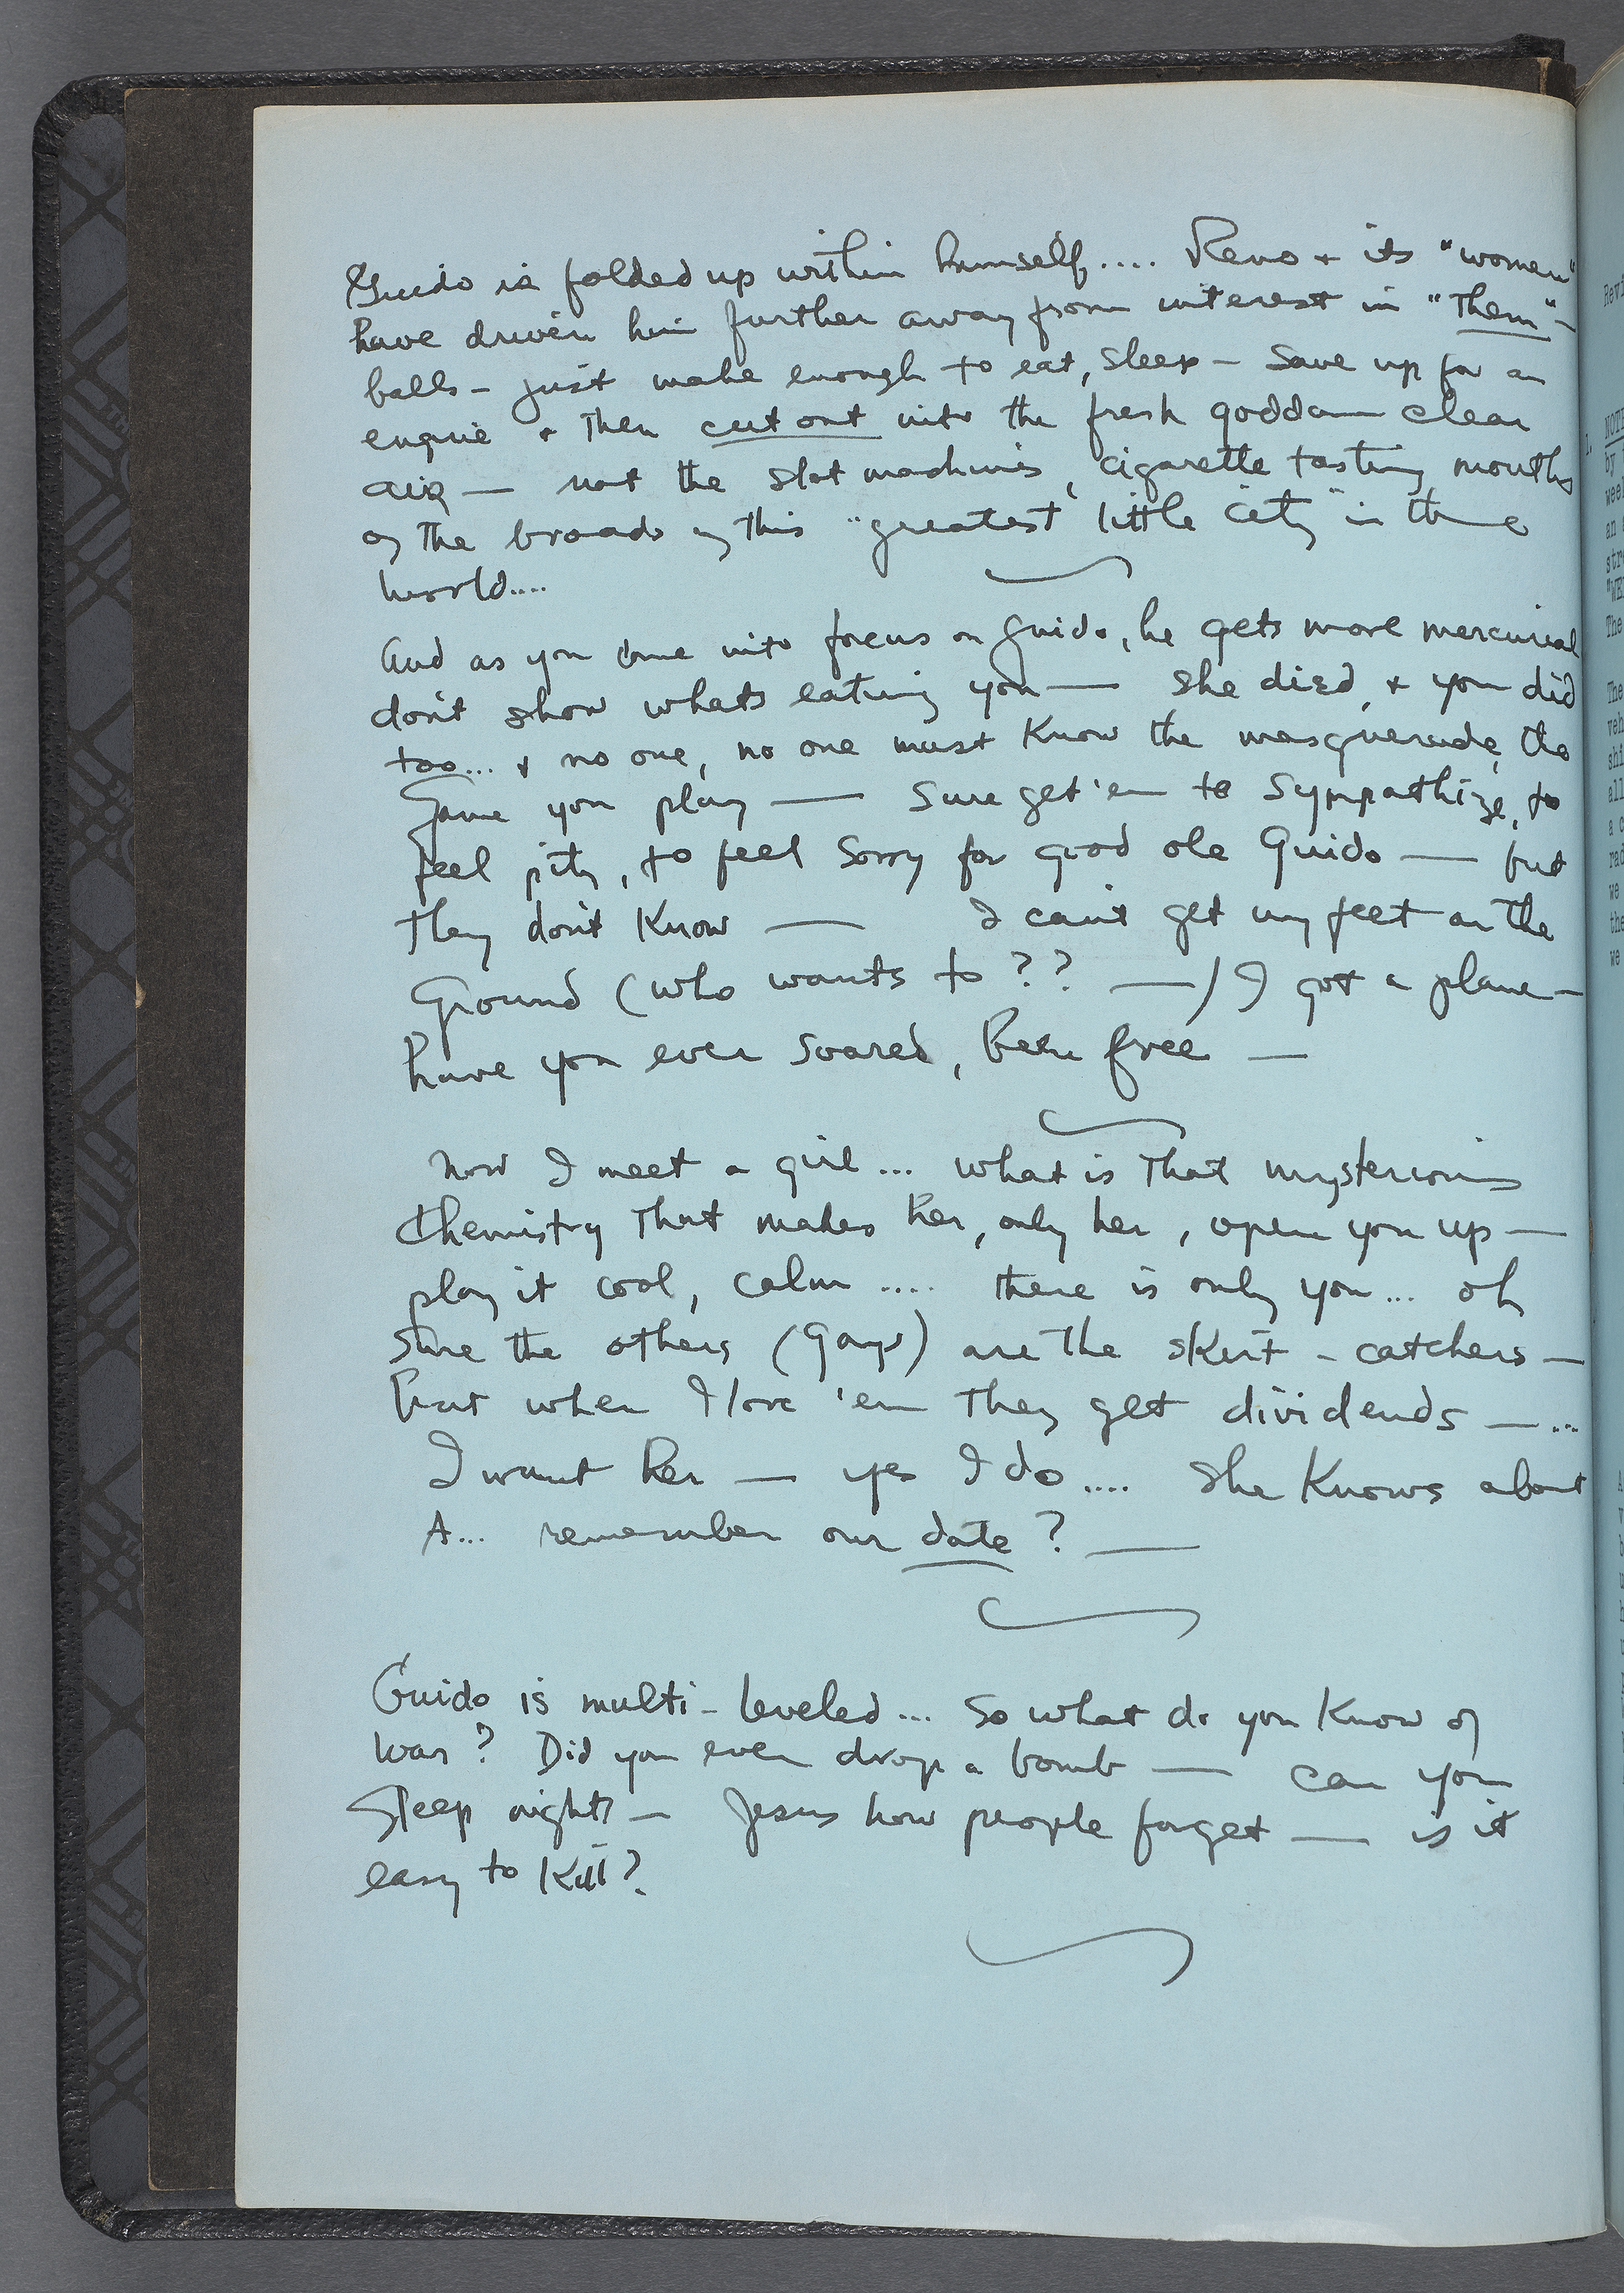 Guido is folded up within himself.... Reno + its "women"
have driven him further away from interest in "Them" -
balls - just make enough to eat, sleep - save up for an
engine + then cut out into the fresh goddam clear
air — not the slot machines, cigarette tasting mouths
of the broads of this "greatest little city" in the
world....
And as you come into focus on Guido, he gets more mercurial
don't show whats eating you — she died, + you did
too... + no one, no one must know the masquerade, the
Game you play — Sure get 'em to sympathize, to
feel pity, to feel sorry for good ole Guido — but
they don't know — I can't get my feet on the
Ground (who wants to ?? —) I got a plane —
have you ever soared, been free —
Now I meet a girl... what is that mysterious
Chemistry that makes her, only her, open you up —
play it cool, calm .... there is only you... oh
Sure the others (Gays) are the skirt - catchers —
but when I love 'em they get dividends — ...
I want her — yes I do.... She knows about
it... remember our date ? —
Guido is multi - leveled... So what do you know of
War ? Did you ever drop a bomb — can you
Sleep nights — Jesus how people forget — is it
easy to kill ?
Rev
1.
NOTE
by
week
an
stre
"WE
The
The
veh
shi
all
a c
rad
we
the
we